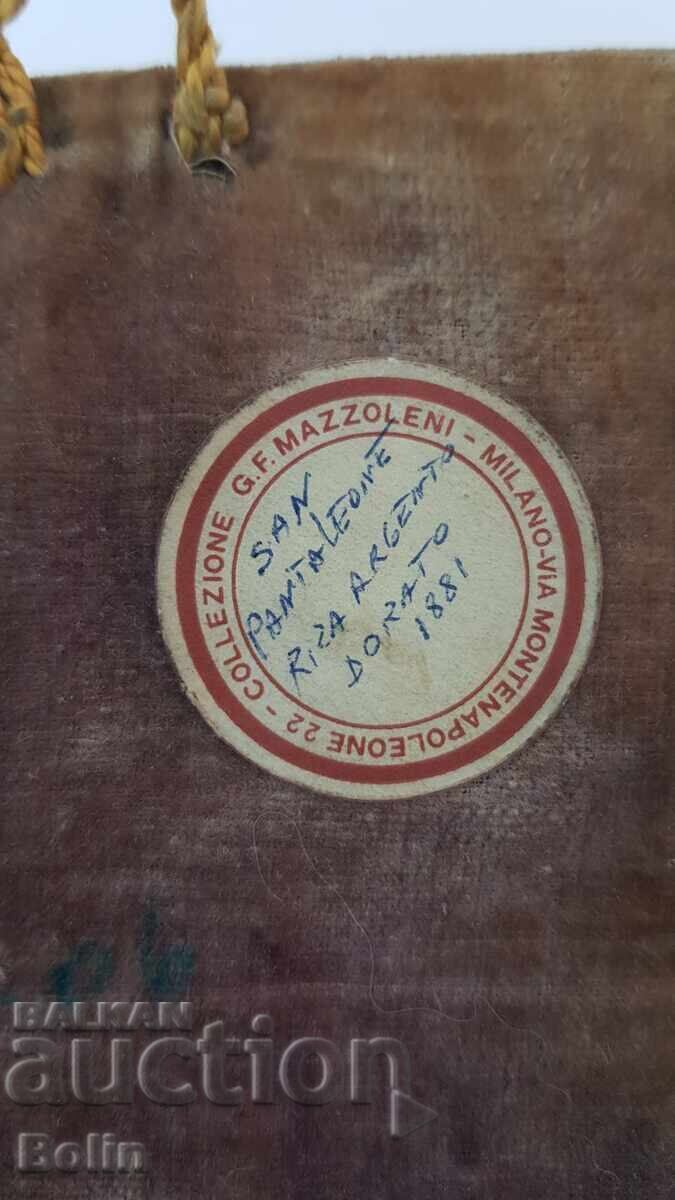 COLLEZIONE G.F. MAZZOLENI - MILANO-ViA MONTENAPOLEONE 22 -
SAN
PANTALEONE
RIZA ARGENTO
DORATO
1881
BALKAN
auction
Bolin